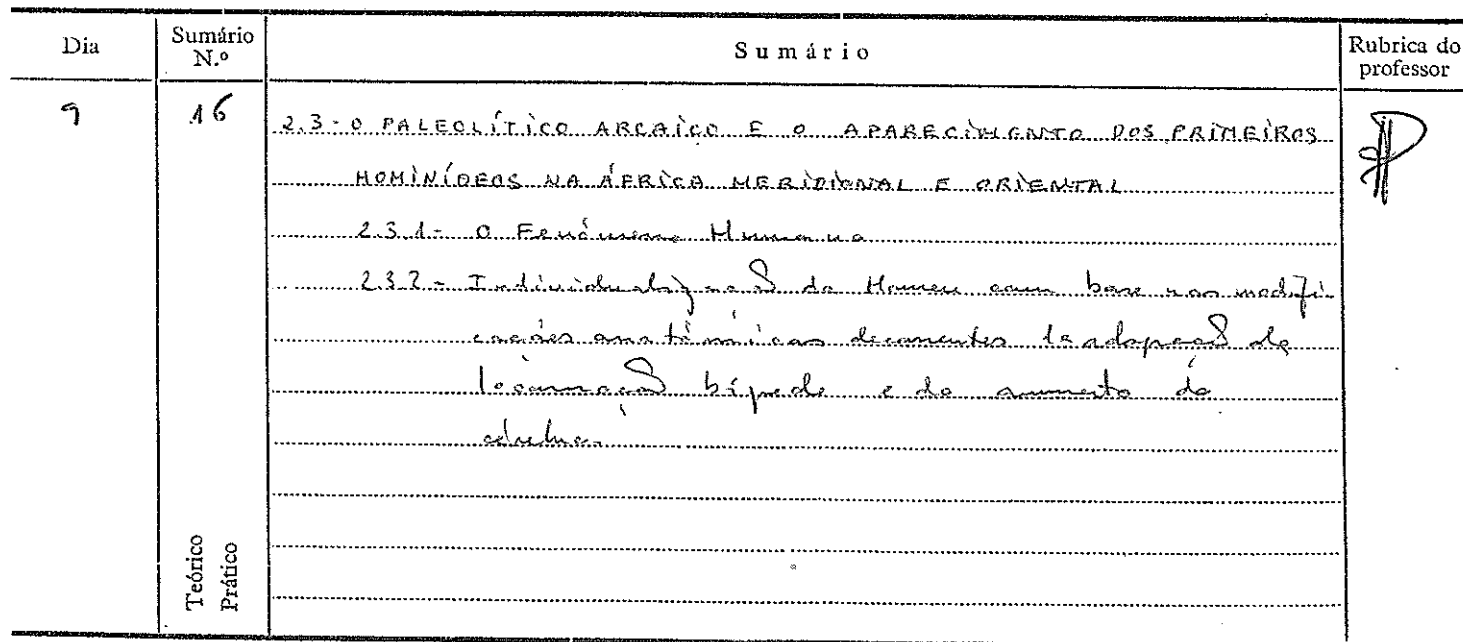 Dia
Sumário N.º
Sumário
Rubrica do professor
9
16
2.3 - O PALEOLÍTICO ARCAICO E O APARECIMENTO DOS PRIMEIROS
HOMINÍDEOS NA ÁFRICA MERIDIONAL E ORIENTAL
2.3.1 - O Fenómeno Humano
2.3.2 - Individualização do Homem com base nas modifi-
cações anatómicas decorrentes da adopção da
locomoção bípede e do aumento do
Teórico
Prático